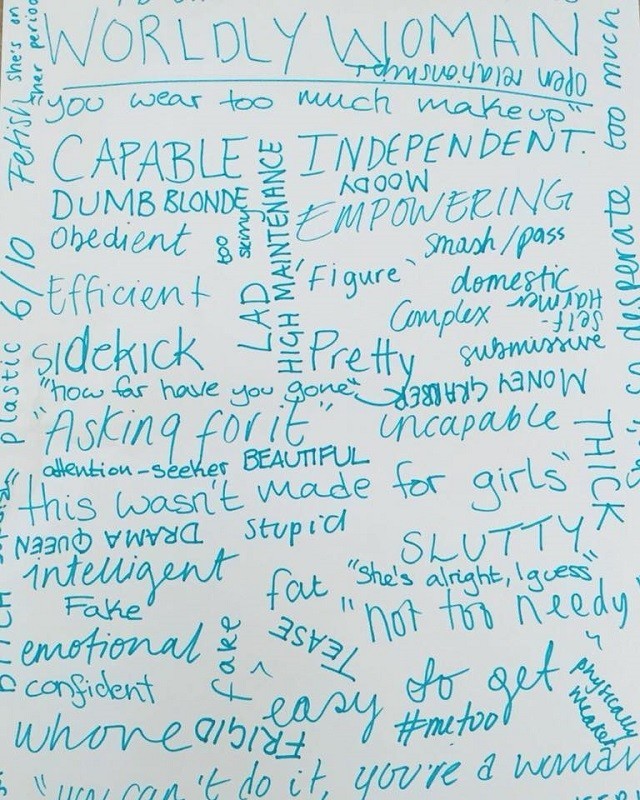 she's on her period
Fetish
WORLDLY WOMAN
open relationships
"you wear too much makeup"
CAPABLE
INDEPENDENT.
MOODY
DUMB BLONDE
EMPOWERING
Obedient
too skinny
HIGH MAINTENANCE
LAD
smash/pass
"Figure"
domestic
Efficient
Complex
Self-Harmer
6/10
plastic
sidekick
Pretty
submissive
"how far have you gone"
MONEY GRABBER
"Asking for it"
incapable
THICK
too much
desperate
attention-seeker
BEAUTIFUL
"this wasn't made for girls"
DRAMA QUEEN
stupid
SLUTTY
intelligent
fat
"She's alright, I guess"
Fake
"not too needy"
emotional
fake
TEASE
confident
easy to get
physically weaker
whore
FRIGID
#metoo
"you can't do it, you're a woman